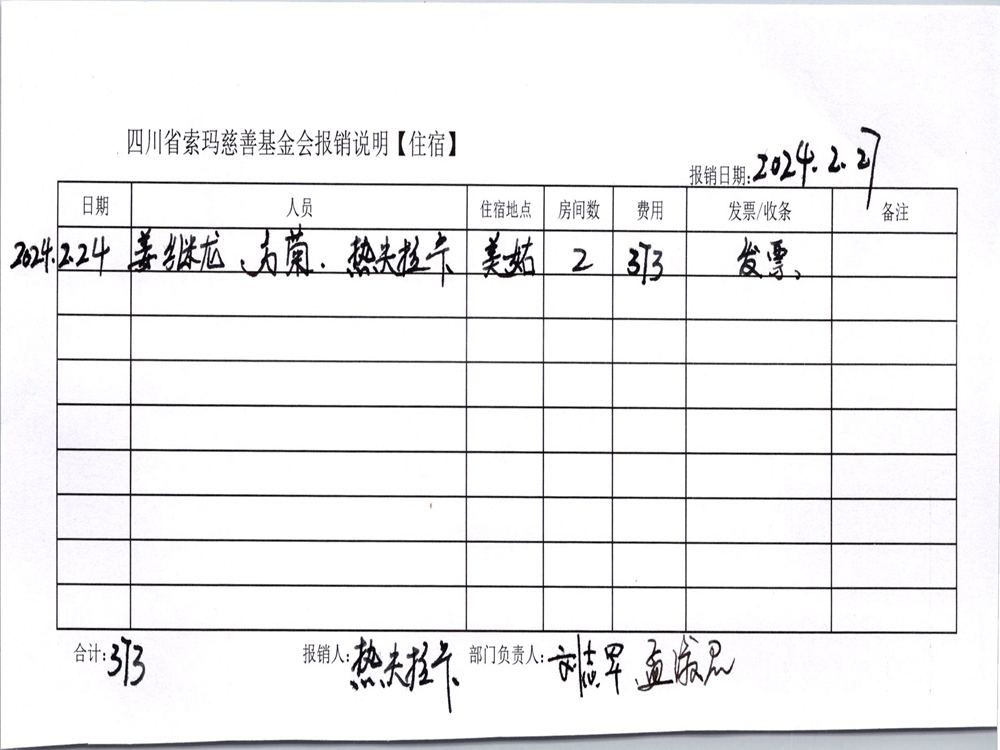 四川省索玛慈善基金会报销说明【住宿】
报销日期:2024.2.27
日期 人员 住宿地点 房间数 费用 发票/收条 备注
2024.2.24 姜继龙、马菊、热夫拉卡 美姑 2 373 发票、
合计:373 报销人:热夫拉卡 部门负责人:刘志军